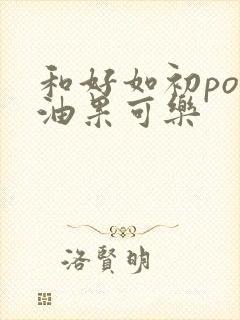 和好如初po
油果可樂
洛賢明